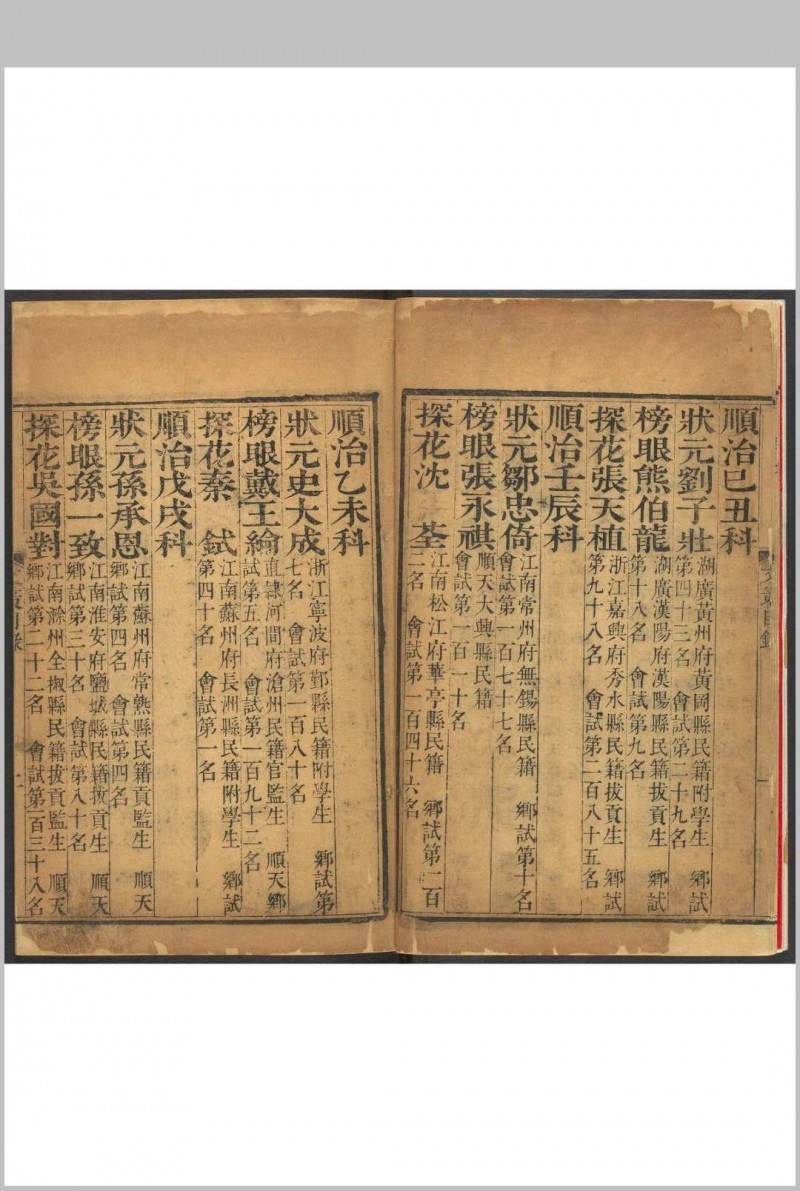 順治己丑科
狀元劉子壯 湖廣黃州府黃岡縣民籍附學生 鄉試
第四十三名 會試第二十九名
榜眼熊伯龍 湖廣漢陽府漢陽縣民籍拔貢生 鄉試
第十八名 會試第九名
探花張天植 浙江嘉興府秀水縣民籍拔貢生 鄉試
第九十八名 會試第二百八十五名
順治壬辰科
狀元鄒忠倚 江南常州府無錫縣民籍 鄉試第十名
會試第一百七十七名
榜眼張永祺 順天大興縣民籍
會試第一百一十名
探花沈 荃 江南松江府華亭縣民籍 鄉試第二百
二名 會試第一百四十六名
順治乙未科
狀元史大成 浙江寧波府鄞縣民籍附學生 鄉試第
七名 會試第一百八十名
榜眼戴王綸 直隸河間府滄州民籍官監生 順天鄉
試第五名 會試第一百九十二名
探花秦 鉽 江南蘇州府長洲縣民籍附學生 鄉試
第四十名 會試第一名
順治戊戌科
狀元孫承恩 江南蘇州府常熟縣民籍貢監生 順天
鄉試第四名 會試第四名
榜眼孫一致 江南淮安府鹽城縣民籍拔貢生 順天
鄉試第三十名 會試第八十名
探花吳國對 江南滁州全椒縣民籍拔貢監生 順天
鄉試第二十二名 會試第一百三十八名